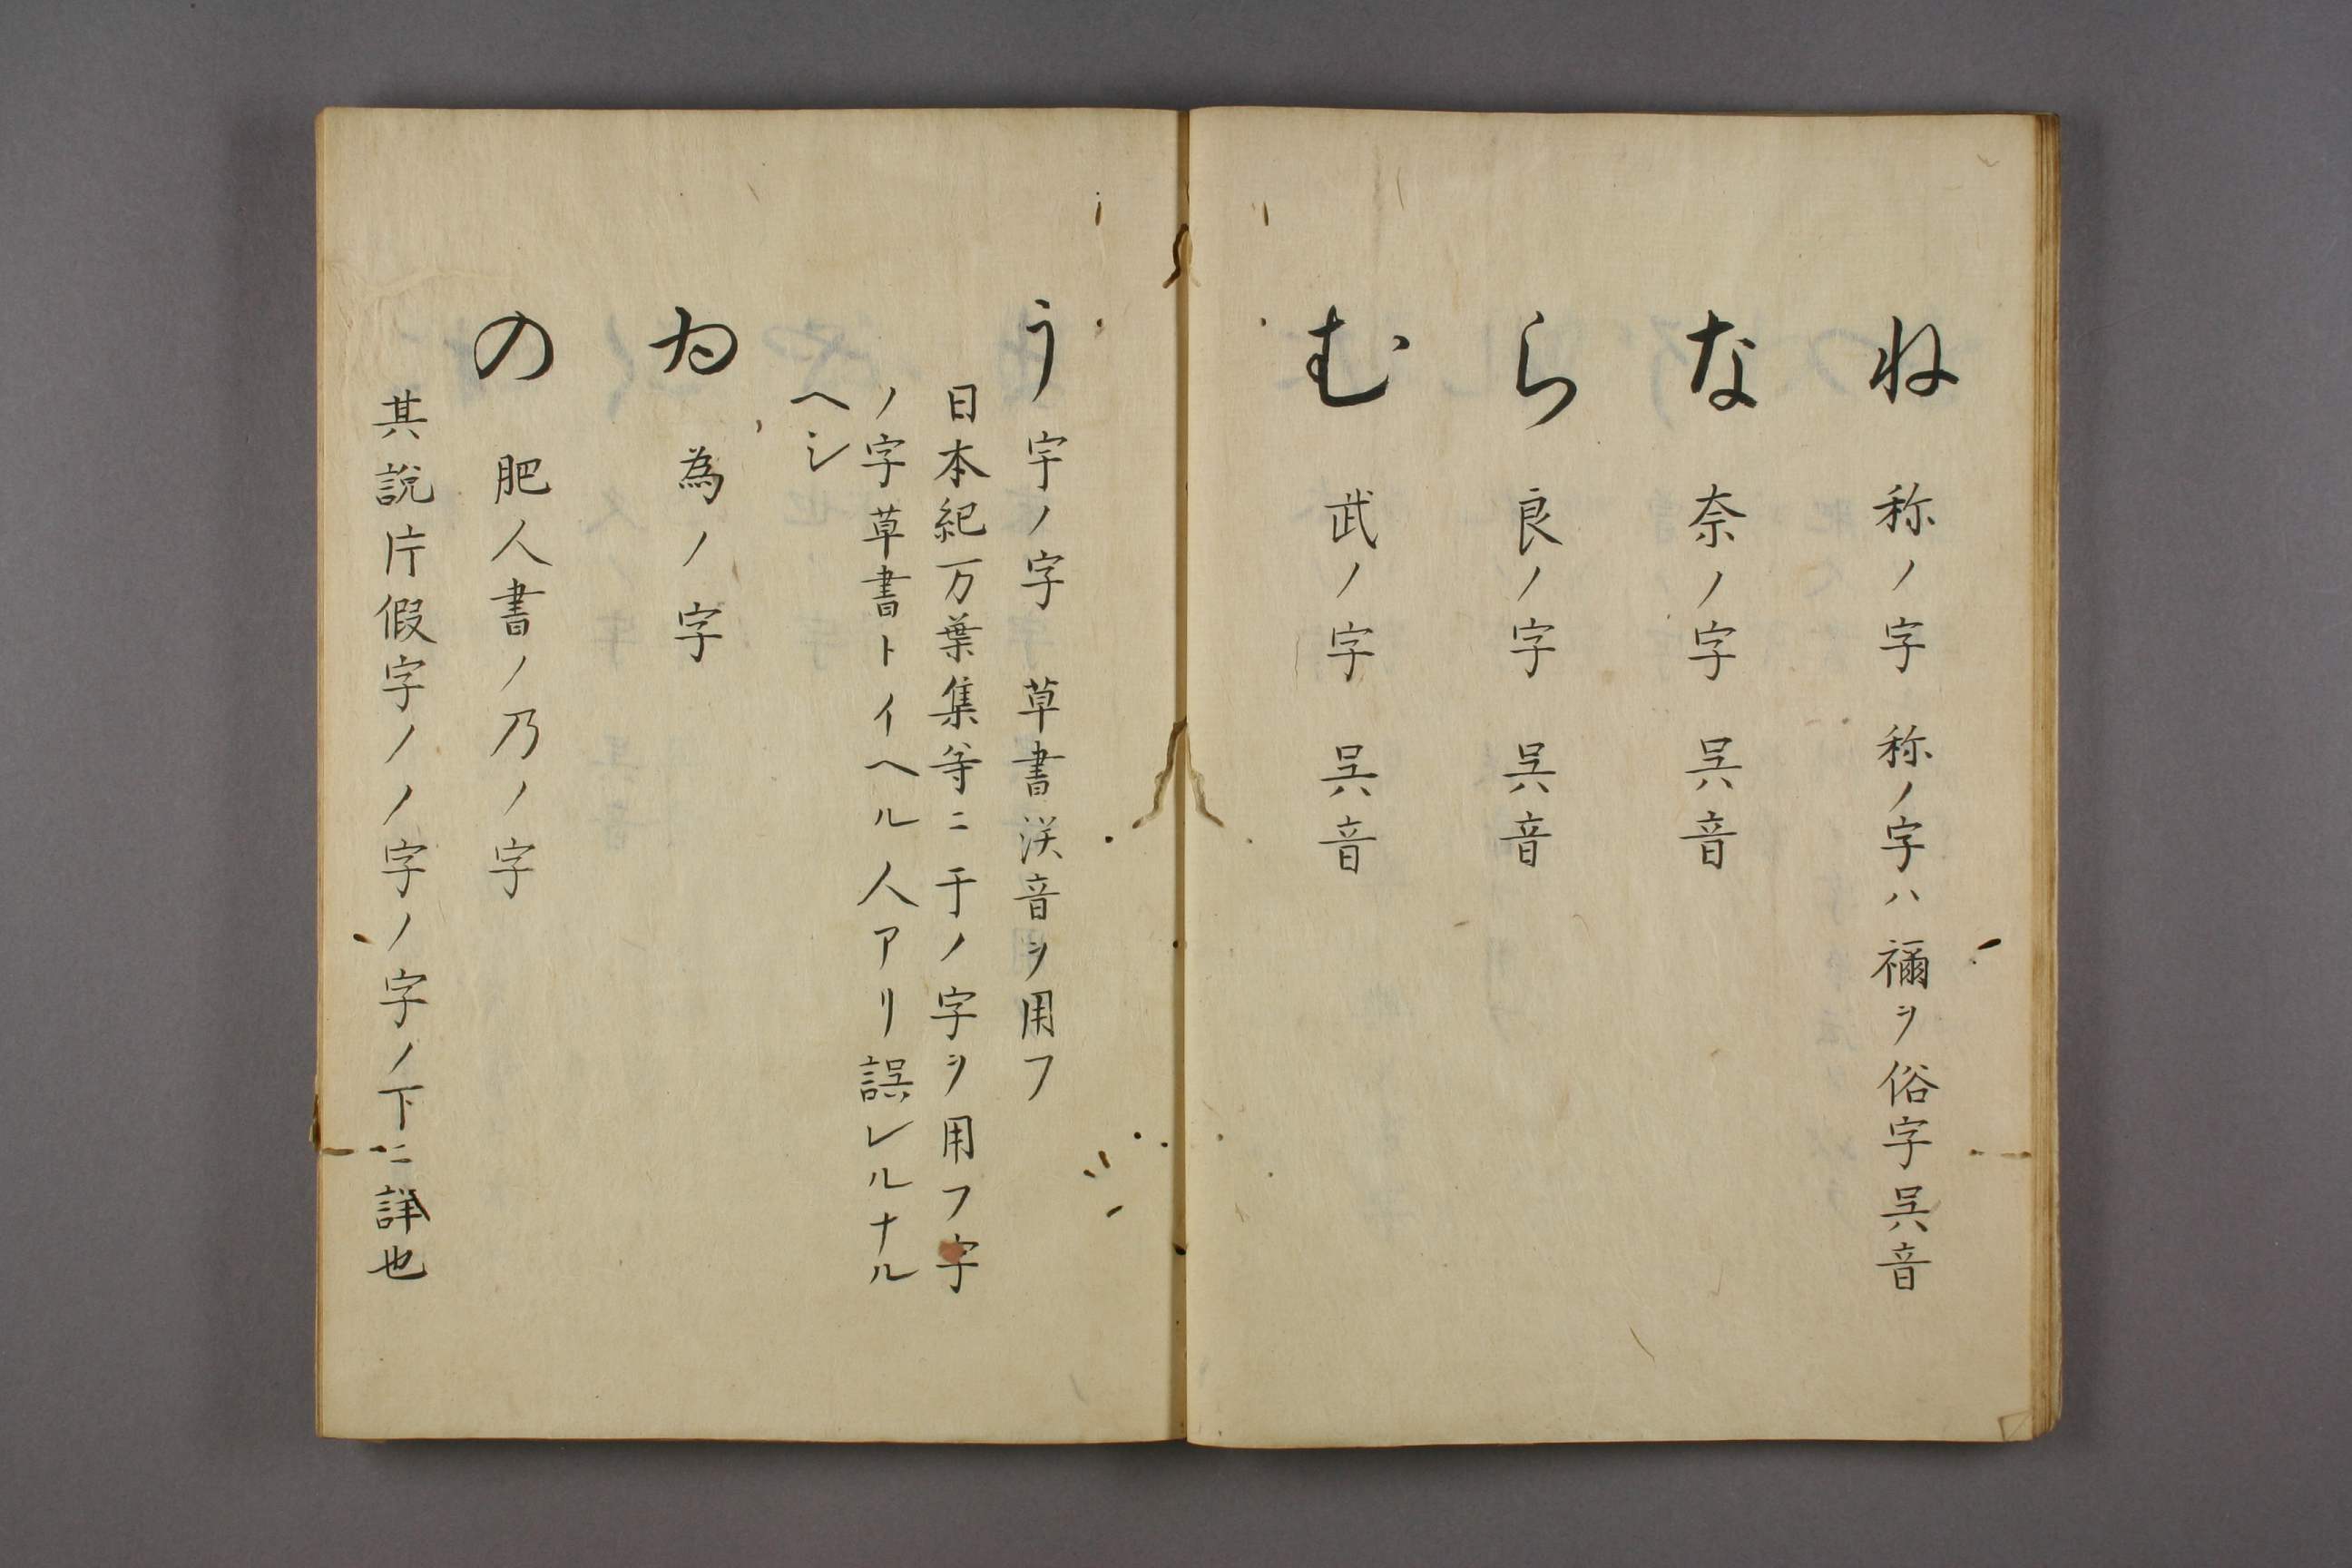 ね 称ノ字 称ノ字ハ禰ヲ俗字呉音
な 奈ノ字 呉音
ら 良ノ字 呉音
む 武ノ字 呉音
う 宇ノ字 草書漢音ヲ用フ
日本紀万葉集等ニ于ノ字ヲ用フ字
ノ字草書トイヘル人アリ誤レルナル
ヘシ
ゐ 為ノ字
の 肥人書ノ乃ノ字
其説片假字ノノ字ノ字ノ下ニ詳也